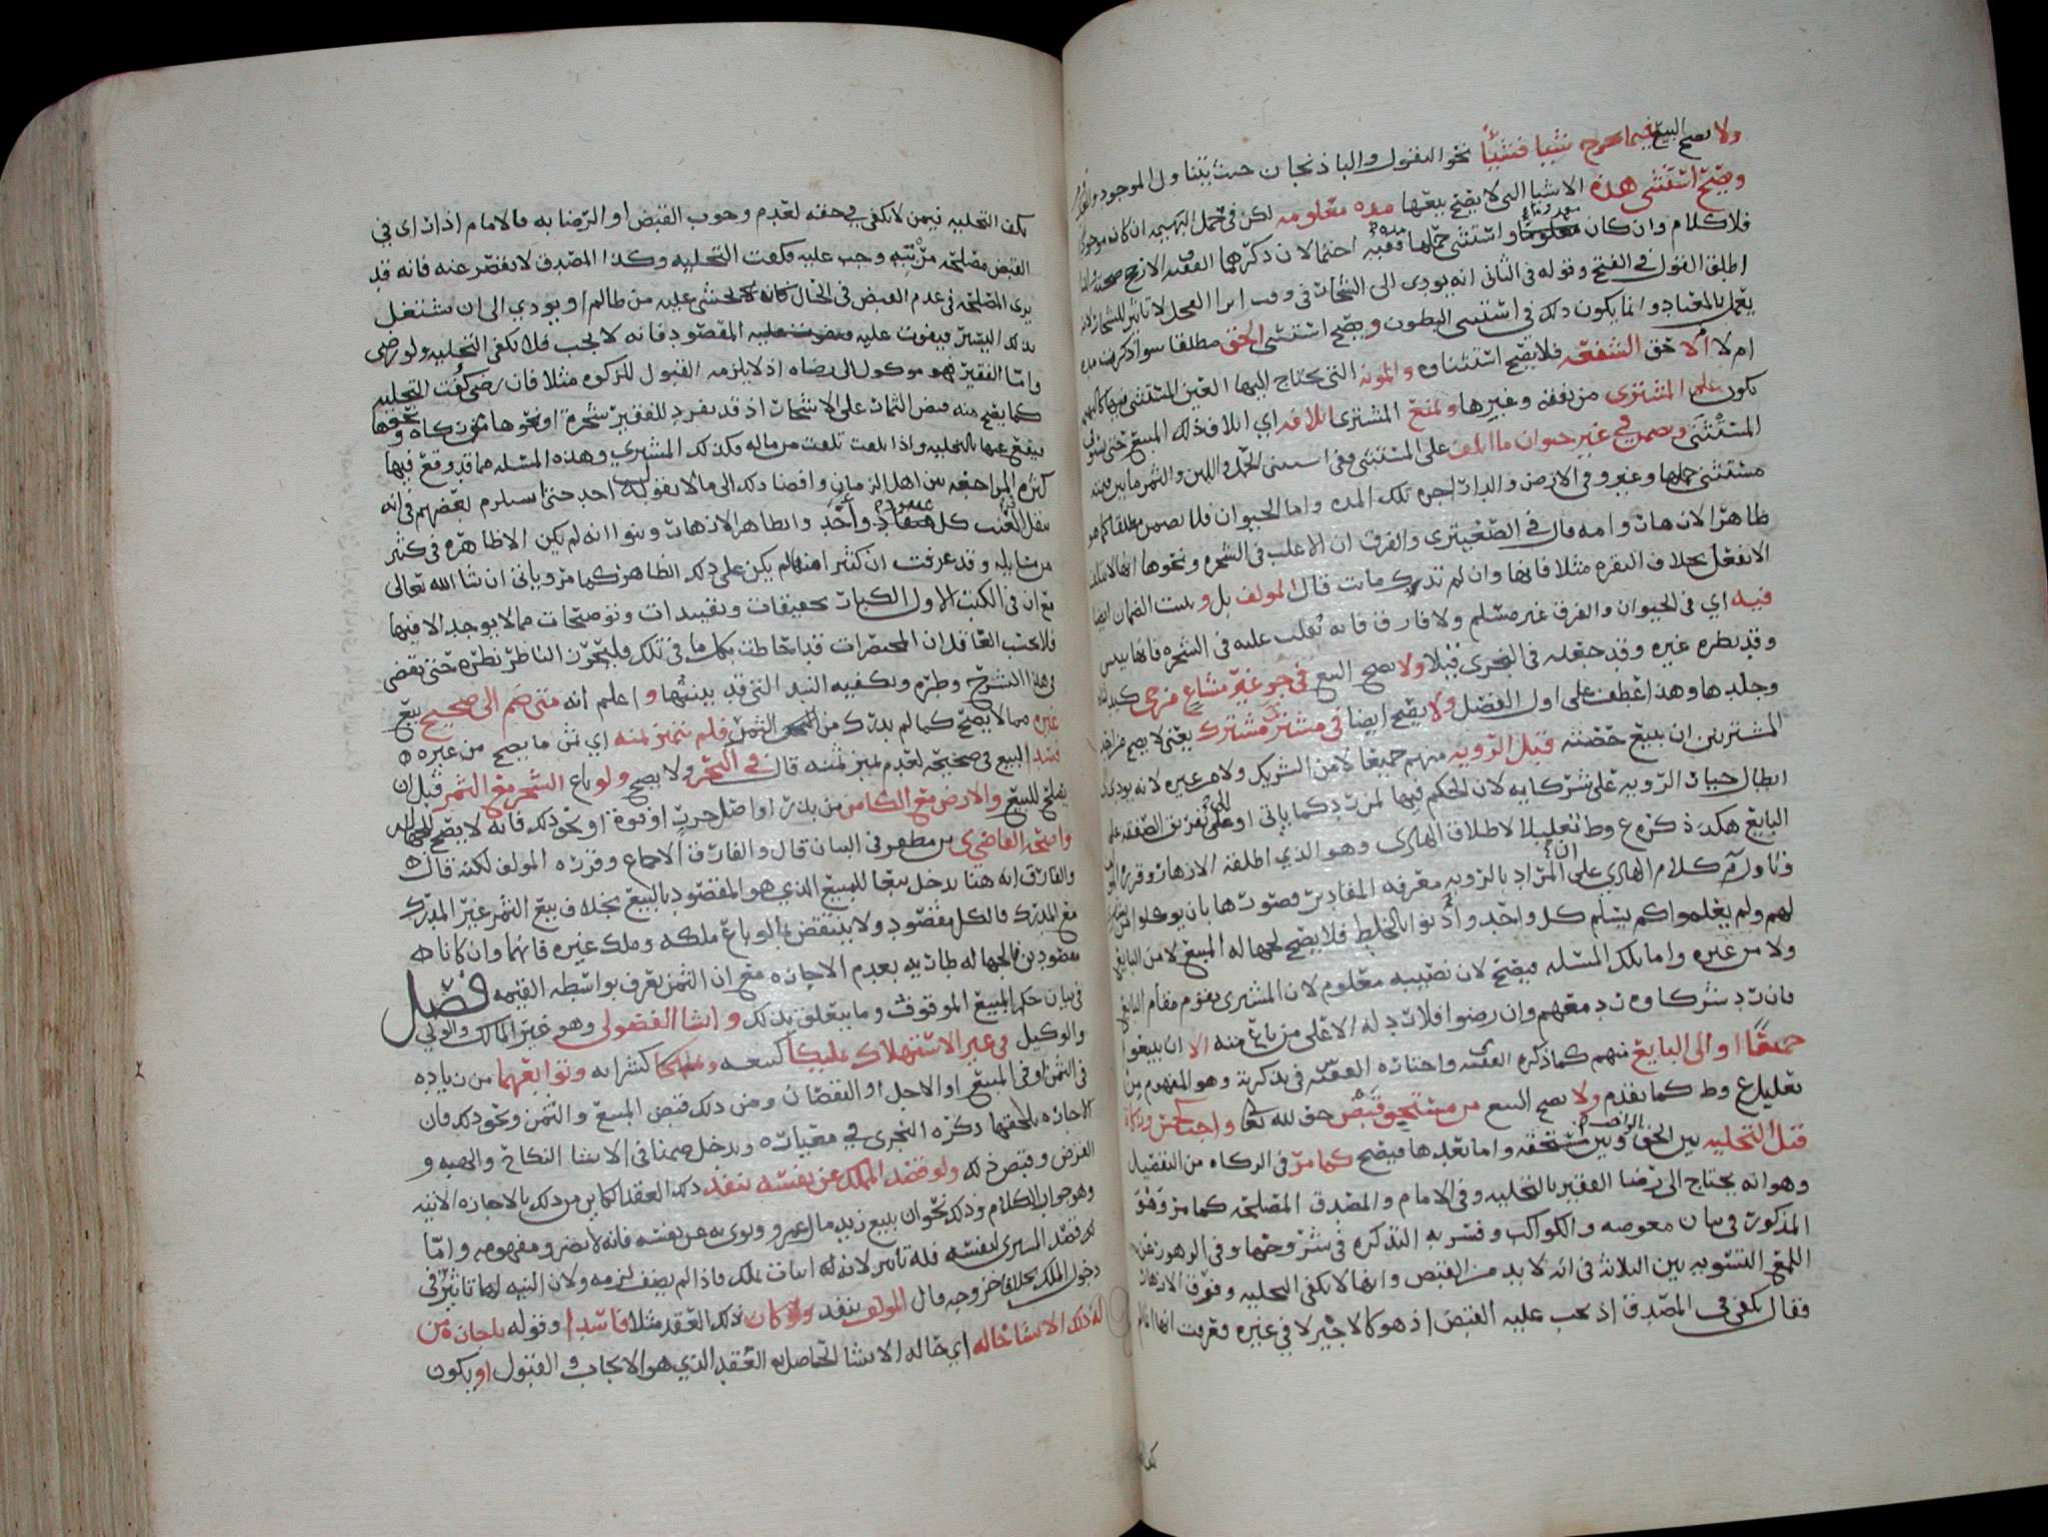 ولا يصح البيع فيما يخرج شيا فشيئاً نحو البقول والباذنجان حيث يتناول الموجود
ويصح استثنى هذه الاشيا التى لا يصح بيعها مده معلومه لكن فى حمل البهيمه ان كان موجودا
فلا كلام وان كان واستثنى حملها ففيه احتمالان ذكرهما الفقيه الارجح صحته
اطلق القول فى الفتح وقوله فى الثانى انه يودى الى الشجار فى وقت
يعمل بالمعتاد وانما يكون ذلك فى استثنى البطون ويصح استثنى الحق مطلقا سوا ذكرت مده
ام لا الا حق الشفعه فلا يصح استثناوه والمونه التى يحتاج اليها العين المستثنى
يكون على المشترى من نفقه وغيرها ويمنع المشترى اتلافه اى اتلاف ذلك المبيع حتى
المستثنى ويضمن فى غير حيوان ما اتلف على المستثنى ففى استثنى الحمل واللبن والثمر ما بين قيمته
مستثنى حملها وغيره وفى الارض والدار اجره تلك المده واما الحيوان فلا يضمن مطلقا
ظاهر الازهار وامه قال فى الصعيترى والفرق ان الاغلب فى الشجره ونحوها انها لا تتلف
الا بفعل بخلاف البقره مثلا فانها وان لم تترك ماتت قال المولف بل ويثبت الضمان ايضا
فيه اي فى الحيوان والفرق غير مسلم ولا فارق فانه يغلب عليه فى الشجره
وقد نظره غيره وقد جعله فى البحرى قبلا ولا يصح البيع فى جزء غير مشاع من حى
وجلدها وهذا عطف على اول الفصل ولا يصح ايضا فى مشترى مشترك يعنى لا يصح من احد
المشتريين ان يبيع حصته قبل الرويه منهم جميعا لا من الشريك ولا من غيره لانه يودى
ابطال خيار الرويه على شركايه لان الحكم فيها لمن رد كما ياتى او الى تفريق الصفقه على
البايع هكذا ذكره ع وط تعليلا لاطلاق الهادى وهو الذي اطلقه الازهار وقرره
وتاول م كلام الهادي على ان المراد بالرويه معرفه المقادير وصورتها بان
لهم ولم يعلموا كم يسلم كل واحد وأذنوا بالخليط فلا يصح لجهاله المبيع لا من البايع
ولا من غيره واما بتلك المسله فيصح لان نصيبه معلوم لان المشترى يقوم مقام البايع
فان رد شركاوه رد معهم وان رضوا فلا رد له الا على من باع منه الا ان يبيعوا
جميعًا او الى البايع منهم كما ذكره الفقيه واختاره الفقيه فى تذكرته وهو المفهوم من
تعليل ع وط كما تقدم ولا يصح البيع من مستحق قبض حق لله تعا واجب كخمس وزكاة
قبل التخليه بين الحق وبين مستحقه واما بعدها فيصح كما مر فى الزكاه من التفصيل
وهو انه يحتاج الى رضا الفقير بالتخليه وفى الامام والمصدق المصلحه كما مر وهو
المذكور فى بيان معوضه والكواكب وفسر به التذكره فى شرحها وفى الرهون
اللمع التسويه بين الثلاثه فى انه لا بد من القبض وانها لا تكفى التخليه وفرق الازهار
فقال تكفى فى المصدق اذ يجب عليه القبض اذ هو كالاجير لا فى غيره فعرفت انها انما
تكف التخليه فيمن لا تكفى فى حقه لعدم وجوب القبض او الرضا به فالامام اذا راى فى
القبض مصلحه مرتبه وجب عليه فكفت التخليه وكذا المصدق لا يقصر عنه فانه قد
يرى المصلحه فى عدم القبض فى الحال لا يخشى عليه من ظالم او يودي الى ان يشتغل
بذلك اليسير فيفوت عليه المقصود فانه لا يجب فلا تكفى التخليه ولو رضى
واما الفقير فهو موكول الى رضاه اذ لا يلزمه القبول للزكوه مثلا فان رضى كفت التخليه
كما يصح منه قبض الثمار على الاشجار اذ قد يفرد للفقير شجرة او نحوها من زكاه ونحوها
فيقع عنها بالتخليه واذا تلفت تلفت من ماله وكذلك المشترى وهذه المسله مما قد وقع فيها
كثره المراجعه بين اهل الزمان وافضا ذلك الى ما لا يقول به احد حتى استلزم بعضهم فى انه
ينقل العنب كل عنقود وأخذ وابطاهر الازهار وبنوا انه لم يكن الا ظاهره فى كثير
من مسايله وقد عرفت ان كثيرا منها لم يكن على ذلك الظاهر كما مر وياتى ان شا الله تعالى
مع ان فى الكتب الاول الكبار تحقيقات وتقييدات وتوضيحات مما لا يوجد الا فيها
فلا يحسب الغافل ان المختصرات قد احاطت بكل ما فى تلك فليتحرز الناظر نظره حتى يقضى
فى هذا الشرح وطره وتكفيه النبذ التى قد بينتها واعلم انه متى ضم الى صحيح بيع
غيره مما لا يصح كما لم يدرك من الثمر فلم يتميز ثمنه اي ثمن ما يصح من غيره
فسد البيع فى صحيحه لعدم تميز ثمنه قال فى البحر ولا يصح ولو باع الشجر مع الثمر قبل ان
يصلح للبيع والارض مع الكامن من بذر او اصل جزر او فوة او نحو ذلك فانه لا يصح للجهاله
واستحه القاضي بن مظفر فى البيان قال والفارق الاجماع وقرره المولف لكنه قال
والفارق انه هنا يدخل تبعا للمبيع الذي هو المقصود بالبيع بخلاف بيع الثمر غير المدرك
مع المدرك فالكل مقصود ولا ينتقض بما لو باع ملكه وملك غيره فانهما وان كانا
مقصودين فالجهاله طاريه بعدم الاجازه مع ان الثمن يعرف بواسطه القيمه فصل
فى بيان حكم المبيع الموقوف وما يتعلق بذلك وانشا الفضولى وهو غير المالك والولي
والوكيل فى غير الاستهلاك تمليكا كبيعه وتملكا كشرايه وتوابعهما من زياده
فى الثمن او فى المبيع او الاجل او النقصان ومن ذلك قبض المبيع والثمن ونحو ذلك فان
الاجازه تلحقها ذكره النجرى في معياره ويدخل ضمنا فى الانشا النكاح والهبه و
القرض وقبض ذلك ولو قصد المملك عن نفسه ينفذ ذلك العقد الكاين من ذلك بالاجازه الاتيه
وهو جواب الكلام وذلك نحو ان يبيع زيد مال عمرو ونوى به عن نفسه فانه لا يضر ومفهومه واما
لو قصد المشترى لنفسه فله تاثير لانه له اثبات ملك فاذا لم يضف لزمه ولان النيه لها تاثير فى
دخول الملك بخلاف خروجه قال المولف ينفذ ولو كان ذلك العقد مثلا فاسدا وقوله باجازة من
له ذلك الانشا حاله اي حاله الانشا الحاصل به العقد الذي هو الايجاب والقبول او يكون